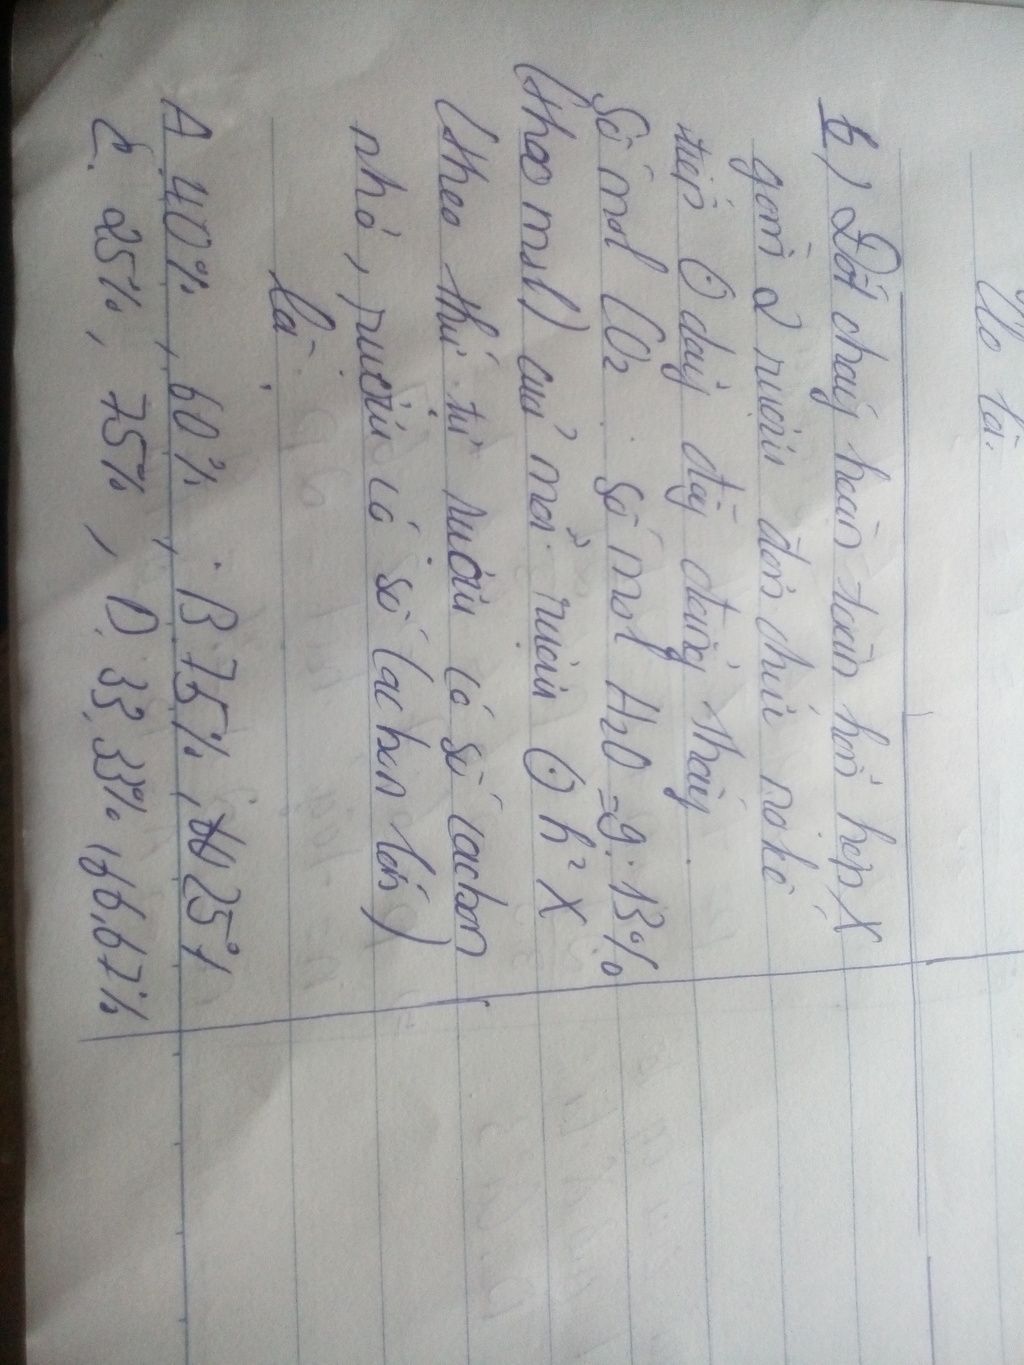 Ulo là.
b) Đốt cháy hoàn toàn hỗn hợp X
gồm 2 rượu đơn chức no kế
tiếp ở dãy đồng đẳng thấy
Số mol CO2 : Số mol H2O = 9 : 13 %
(theo mol) của mỗi rượu ở h² X
(theo thứ tự rượu có số cacbon
nhỏ, rượu có số cacbon lớn)
là
A 40%, 60%. B 75%, 25%
C. 25%, 75%, D. 33,33%, 66,67%